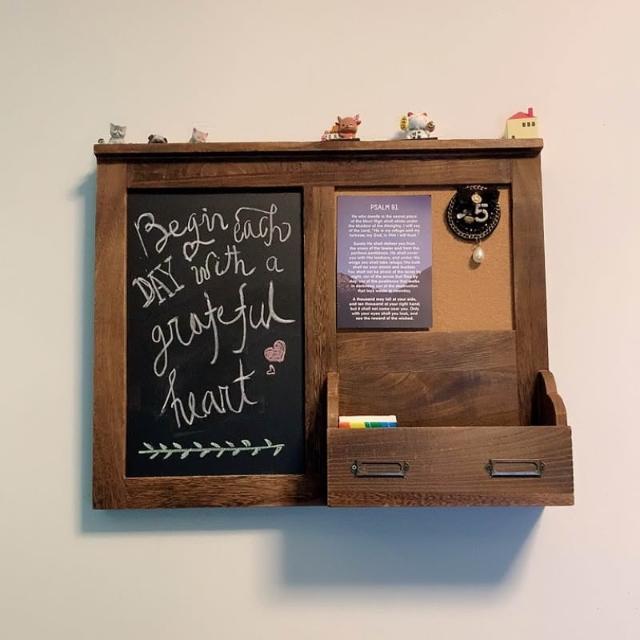 Begin Each
DAY with a
grateful
heart
PSALM 91
He who dwells in the secret place
of the Most High shall abide under
the shadow of the Almighty. I will say
of the Lord, "He is my refuge and my
fortress; my God, in Him I will trust."
Surely He shall deliver you from
the snare of the fowler and from the
perilous pestilence. He shall cover
you with His feathers, and under His
wings you shall take refuge; His truth
shall be your shield and buckler.
You shall not be afraid of the terror by
night, nor of the arrow that flies by
day, nor of the pestilence that walks
in darkness, nor of the destruction
that lays waste at noonday.
A thousand may fall at your side,
and ten thousand at your right hand;
but it shall not come near you. Only
with your eyes shall you look, and
see the reward of the wicked.
5